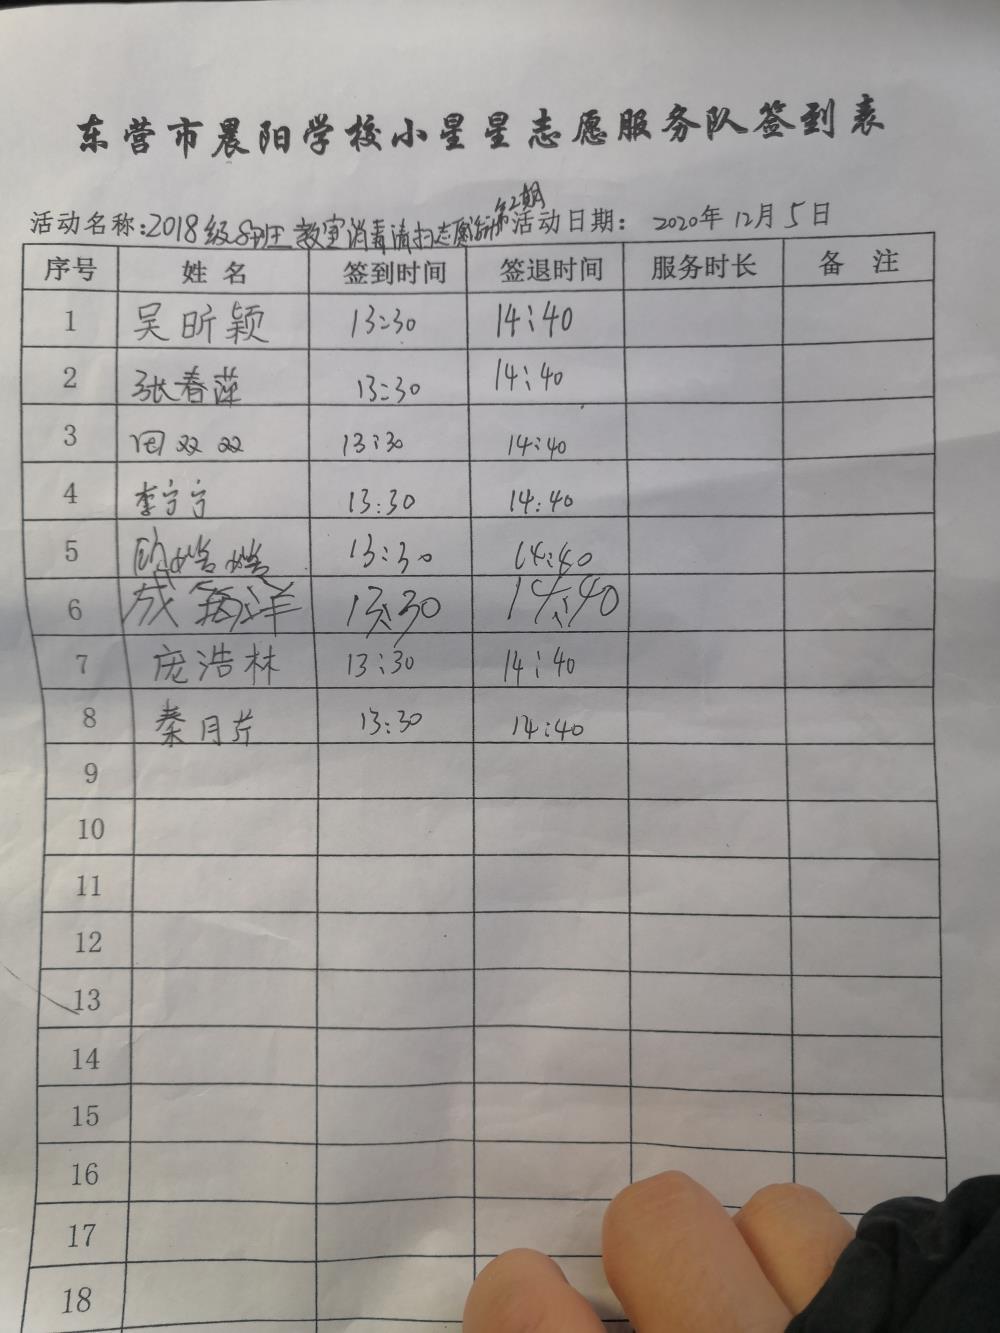 东营市晨阳学校小星星志愿服务队签到表
活动名称:2018级8班教室消毒清扫志愿活动第2期 活动日期: 2020年12月5日
序号 姓名 签到时间 签退时间 服务时长 备注
1 吴昕颖 13:30 14:40
2 张春萍 13:30 14:40
3 田双双 13:30 14:40
4 李宁宁 13:30 14:40
5 13:30 14:40
6 成海洋 13:30 14:40
7 庞浩林 13:30 14:40
8 秦月芹 13:30 14:40
9
10
11
12
13
14
15
16
17
18